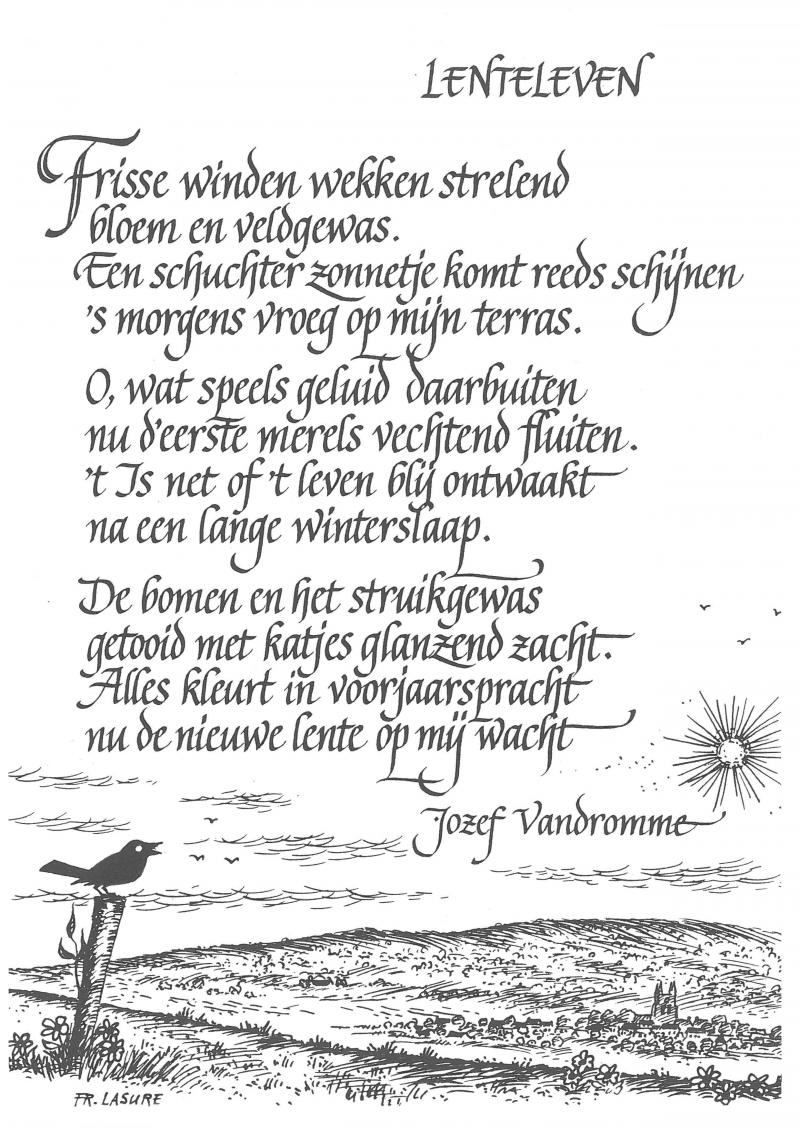 LENTELEVEN
Frisse winden wekken strelend
bloem en veldgewas.
Een schuchter zonnetje komt reeds schijnen
's morgens vroeg op mijn terras.
O, wat speels geluid daarbuiten
nu d'eerste merels vechtend fluiten.
't Is net of 't leven blij ontwaakt
na een lange winterslaap.
De bomen en het struikgewas
getooid met katjes glanzend zacht.
Alles kleurt in voorjaarspracht
nu de nieuwe lente op mij wacht
Jozef Vandromme
FR. LASURE